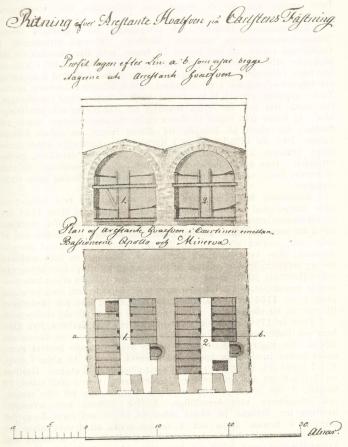 Ritning öfver Arestante Hvalfven på Carlstens Fästning
Profil tagen efter Lin: a b som visar begge
etagerne uti Arrestant Hvalfven
1. 2.
Plan af Arestant Hvalfven i Courtinen emellan
Bastionerne Apollo och Minerva.
a 1. 2. b.
10 5 0 10 20 30 Alnar.